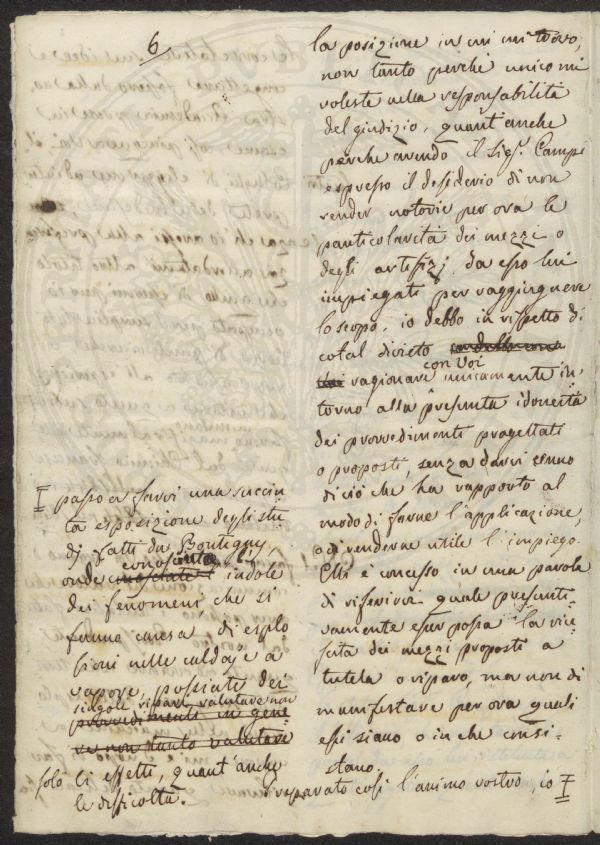 6
la posizione in cui mi trovo,
non tanto perchè unico mi
voleste nella responsabilità
del giudizio, quant'anche
perchè avendo il Sigr. Campi
espresso il desiderio di non
render notorie per ora le
particolarità dei mezzi o
degli artifizj da esso lui
impiegati per raggiungnere
lo scopo, io debbo in rispetto di
cotal divieto
con voi
ragionare unicamente in=
torno alla presunta idoneità
dei provvedimenti progettati
o proposti, senza darvi cenno
di ciò che ha rapporto al
modo di farne l'applicazione,
o di renderne utile l'impiego.
Mi è concesso in una parola
di riferirvi quale presunti=
vamente esser possa la riu=
scita dei mezzi proposti a
tutela o riparo, ma non di
manifestare per ora quali
essi siano o in che consi=
stano.
Preparato così l'animo vostro, io
passo a farvi una succin
ta esposizione degli stu
dj fatti da Boutigny,
onde conosciuta l'indole
dei fenomeni che si
fanno causa, di esplo
sioni nelle caldaje a
vapore, possiate dei
singoli ripari valutare non
provvedimenti in gene
re non tanto valutare
solo li effetti, quant'anche
le difficoltà.